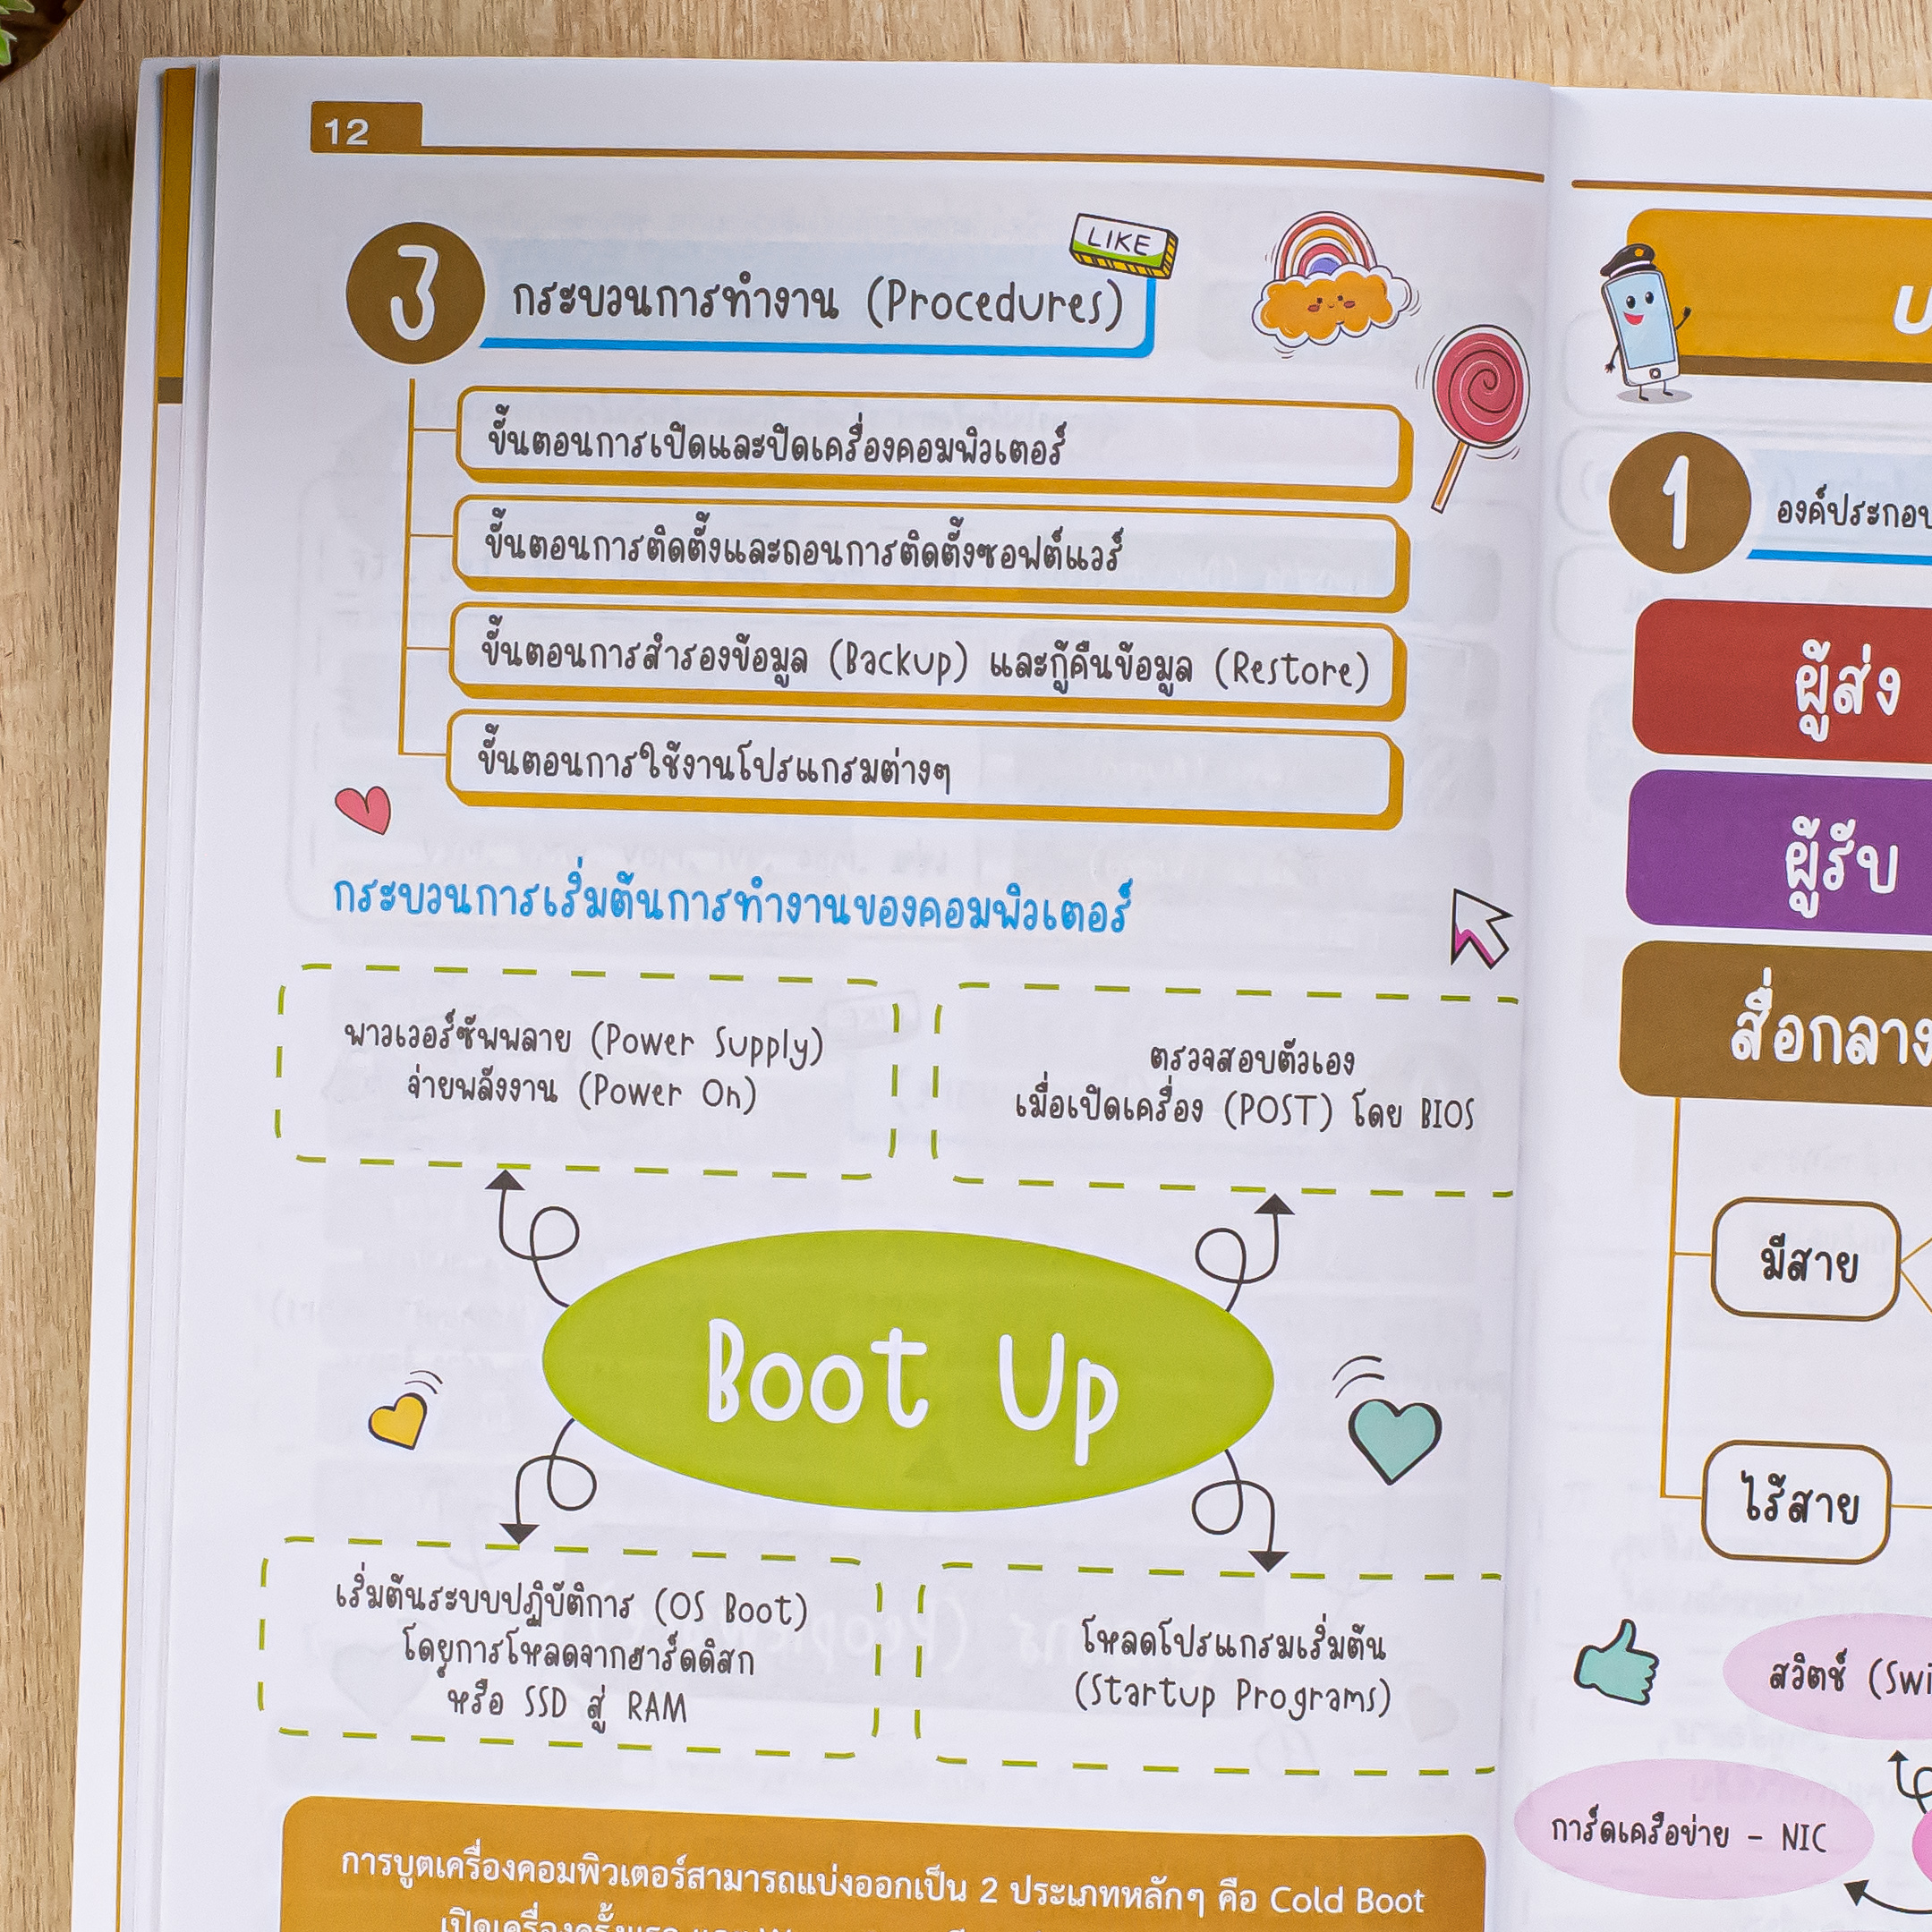 12
3
กระบวนการทำงาน (Procedures)
LIKE
ขั้นตอนการเปิดและปิดเครื่องคอมพิวเตอร์
ขั้นตอนการติดตั้งและถอนการติดตั้งซอฟต์แวร์
ขั้นตอนการสำรองข้อมูล (Backup) และกู้คืนข้อมูล (Restore)
ขั้นตอนการใช้งานโปรแกรมต่างๆ
กระบวนการเริ่มต้นการทำงานของคอมพิวเตอร์
พาวเวอร์ซัพพลาย (Power Supply)
จ่ายพลังงาน (Power On)
ตรวจสอบตัวเอง
เมื่อเปิดเครื่อง (POST) โดย BIOS
Boot Up
เริ่มต้นระบบปฏิบัติการ (OS Boot)
โดยการโหลดจากฮาร์ดดิสก์
หรือ SSD สู่ RAM
โหลดโปรแกรมเริ่มต้น
(Startup Programs)
การบูตเครื่องคอมพิวเตอร์สามารถแบ่งออกเป็น 2 ประเภทหลักๆ คือ Cold Boot
เปิดเครื่องครั้งแรก
1
องค์ประกอบ
ผู้ส่ง
ผู้รับ
สื่อกลาง
มีสาย
ไร้สาย
สวิตช์ (Swi
การ์ดเครือข่าย - NIC